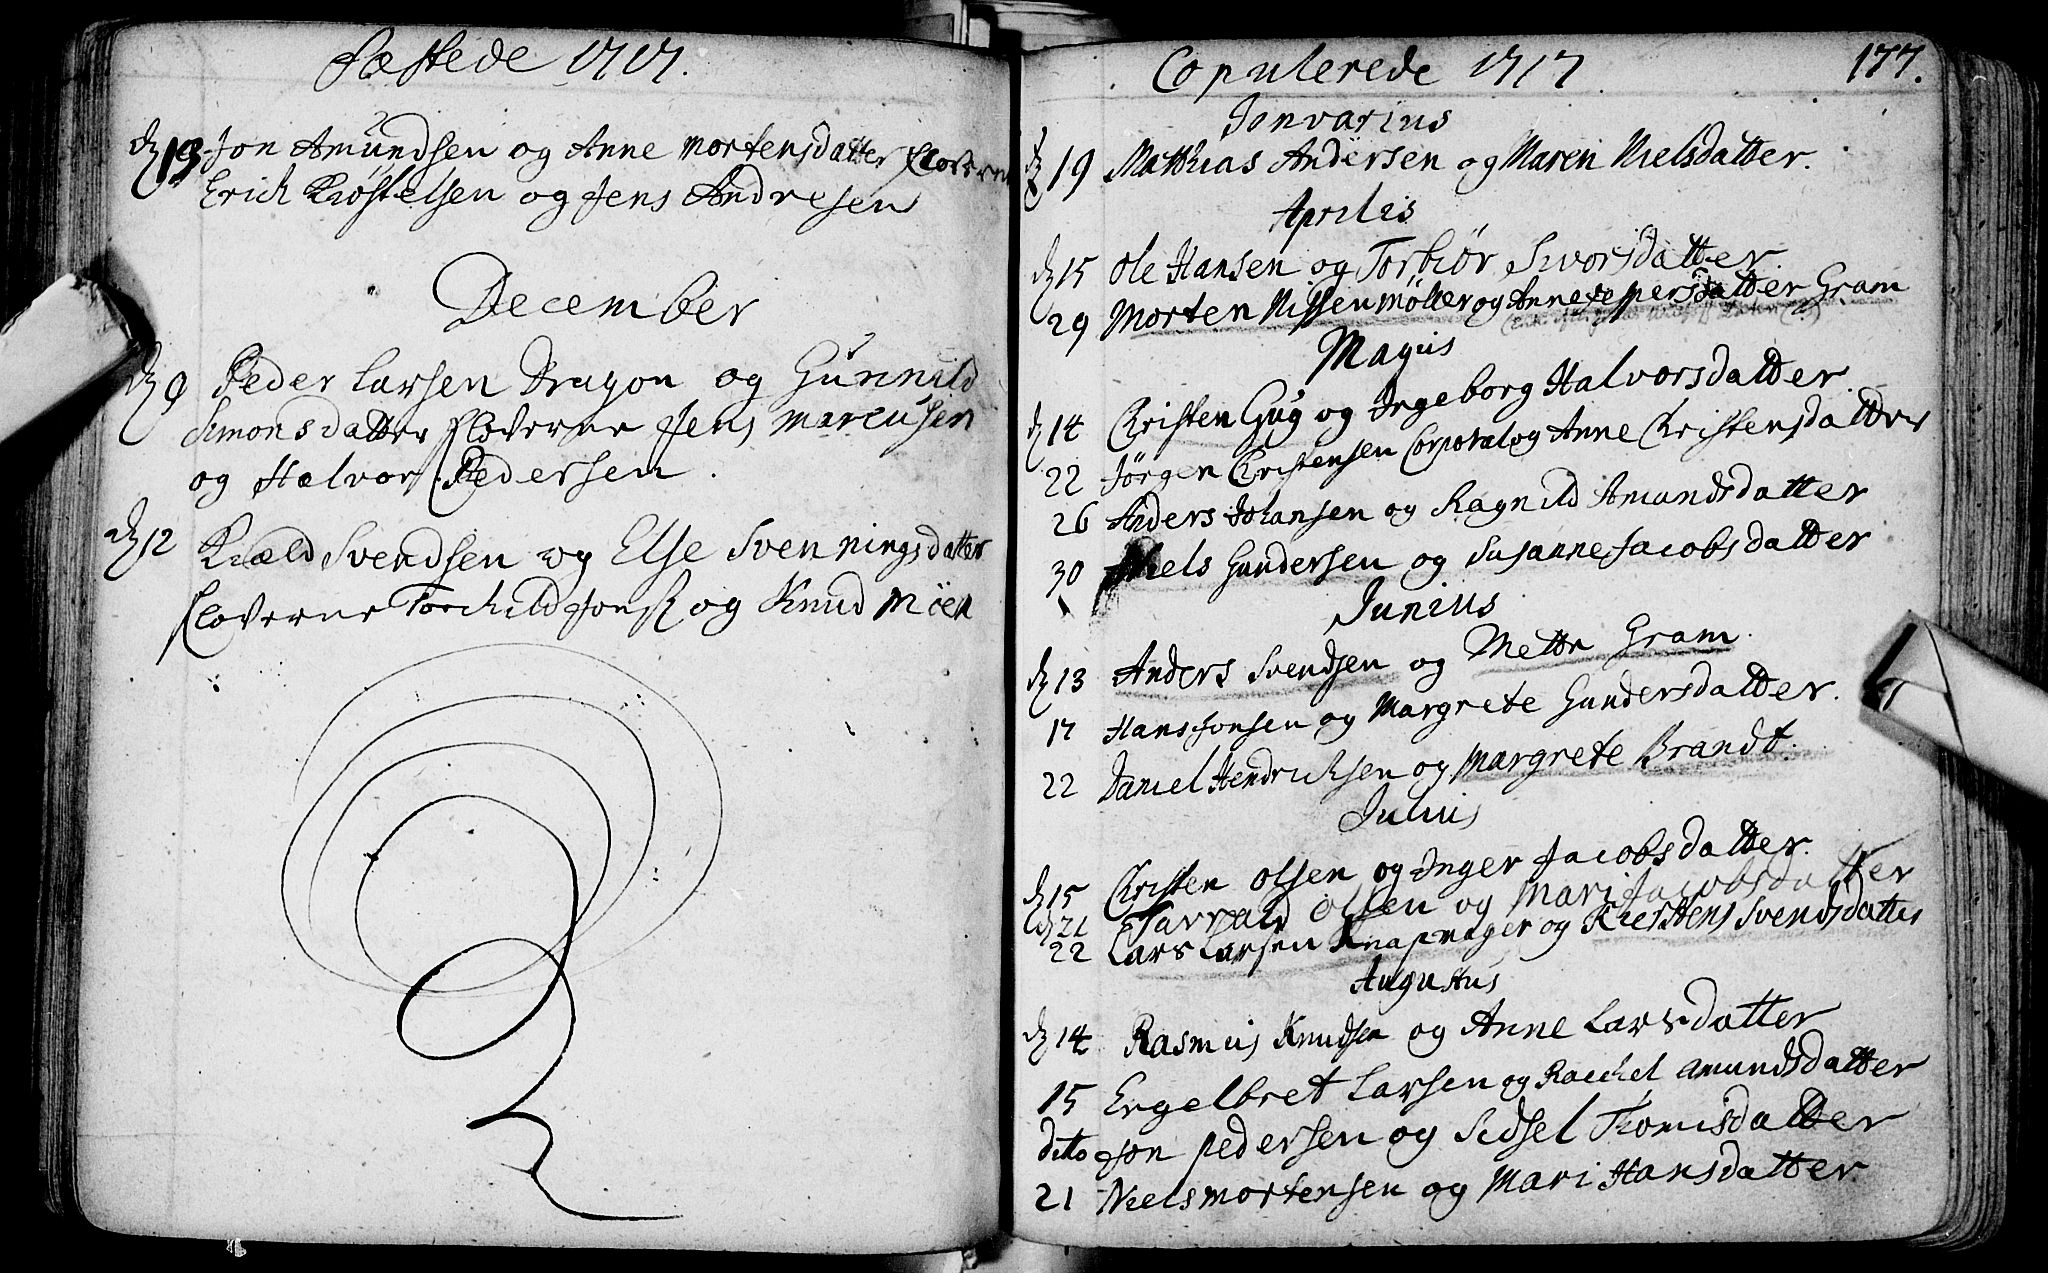 Fæstede 1717.
d 13 Jon Amundsen og Anne Mortensdatter floverne
Erich Kiøstelsen og Jens Andresen
December
d 9 Peder Larsen Dragon og Gunnild
Simonsdatter floverne Jens Marcusen
og Halvor Pedersen.
d 12 Kield Svendsen og Else Svenningsdatter
floverne Torchild Jons: og Knud Möen
Copulerede 1717 177.
Janvarius
d 19 Matthias Andersen og Maren Nielsdatter.
Aprilis
d 15 Ole Hansen og Torbiør Sivorsdatter
29 Morten Nissen Møller og Anne Jeppersdatter Gram
Majus
d 14 Christen Gug og Ingeborg Halvorsdatter
22 Jørgen Christensen Corporal og Anne Christensdatter
26 Anders Johansen og Ragnild Amundsdatter
30 Niels Gundersen og Susanne Jacobsdatter
Junius
d 13 Anders Svendsen og Mette Gram.
17 Hans Jonsen og Margrete Gundersdatter.
22 Daniel Hendrichsen og Margrete Brandt.
Julius
d 15 Christen Olsen og Inger Jacobsdatter.
d 21 Tarvald Olsen og Mari Jacobsdatter
22 Lars Larsen Knapmager og Kiersten Svendsdatter
Augustus
d 14 Rasmus Knudsen og Anne Larsdatter
15 Engelbret Larsen og Rachel Amundsdatter
dito Jon Pedersen og Sidsel Thomisdatter
21 Niels Mortensen og Mari Hansdatter.